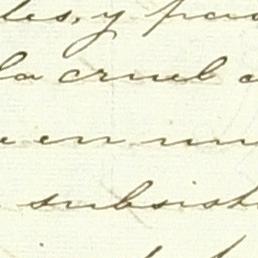 des, y pa
la cruel a
en un
subsist